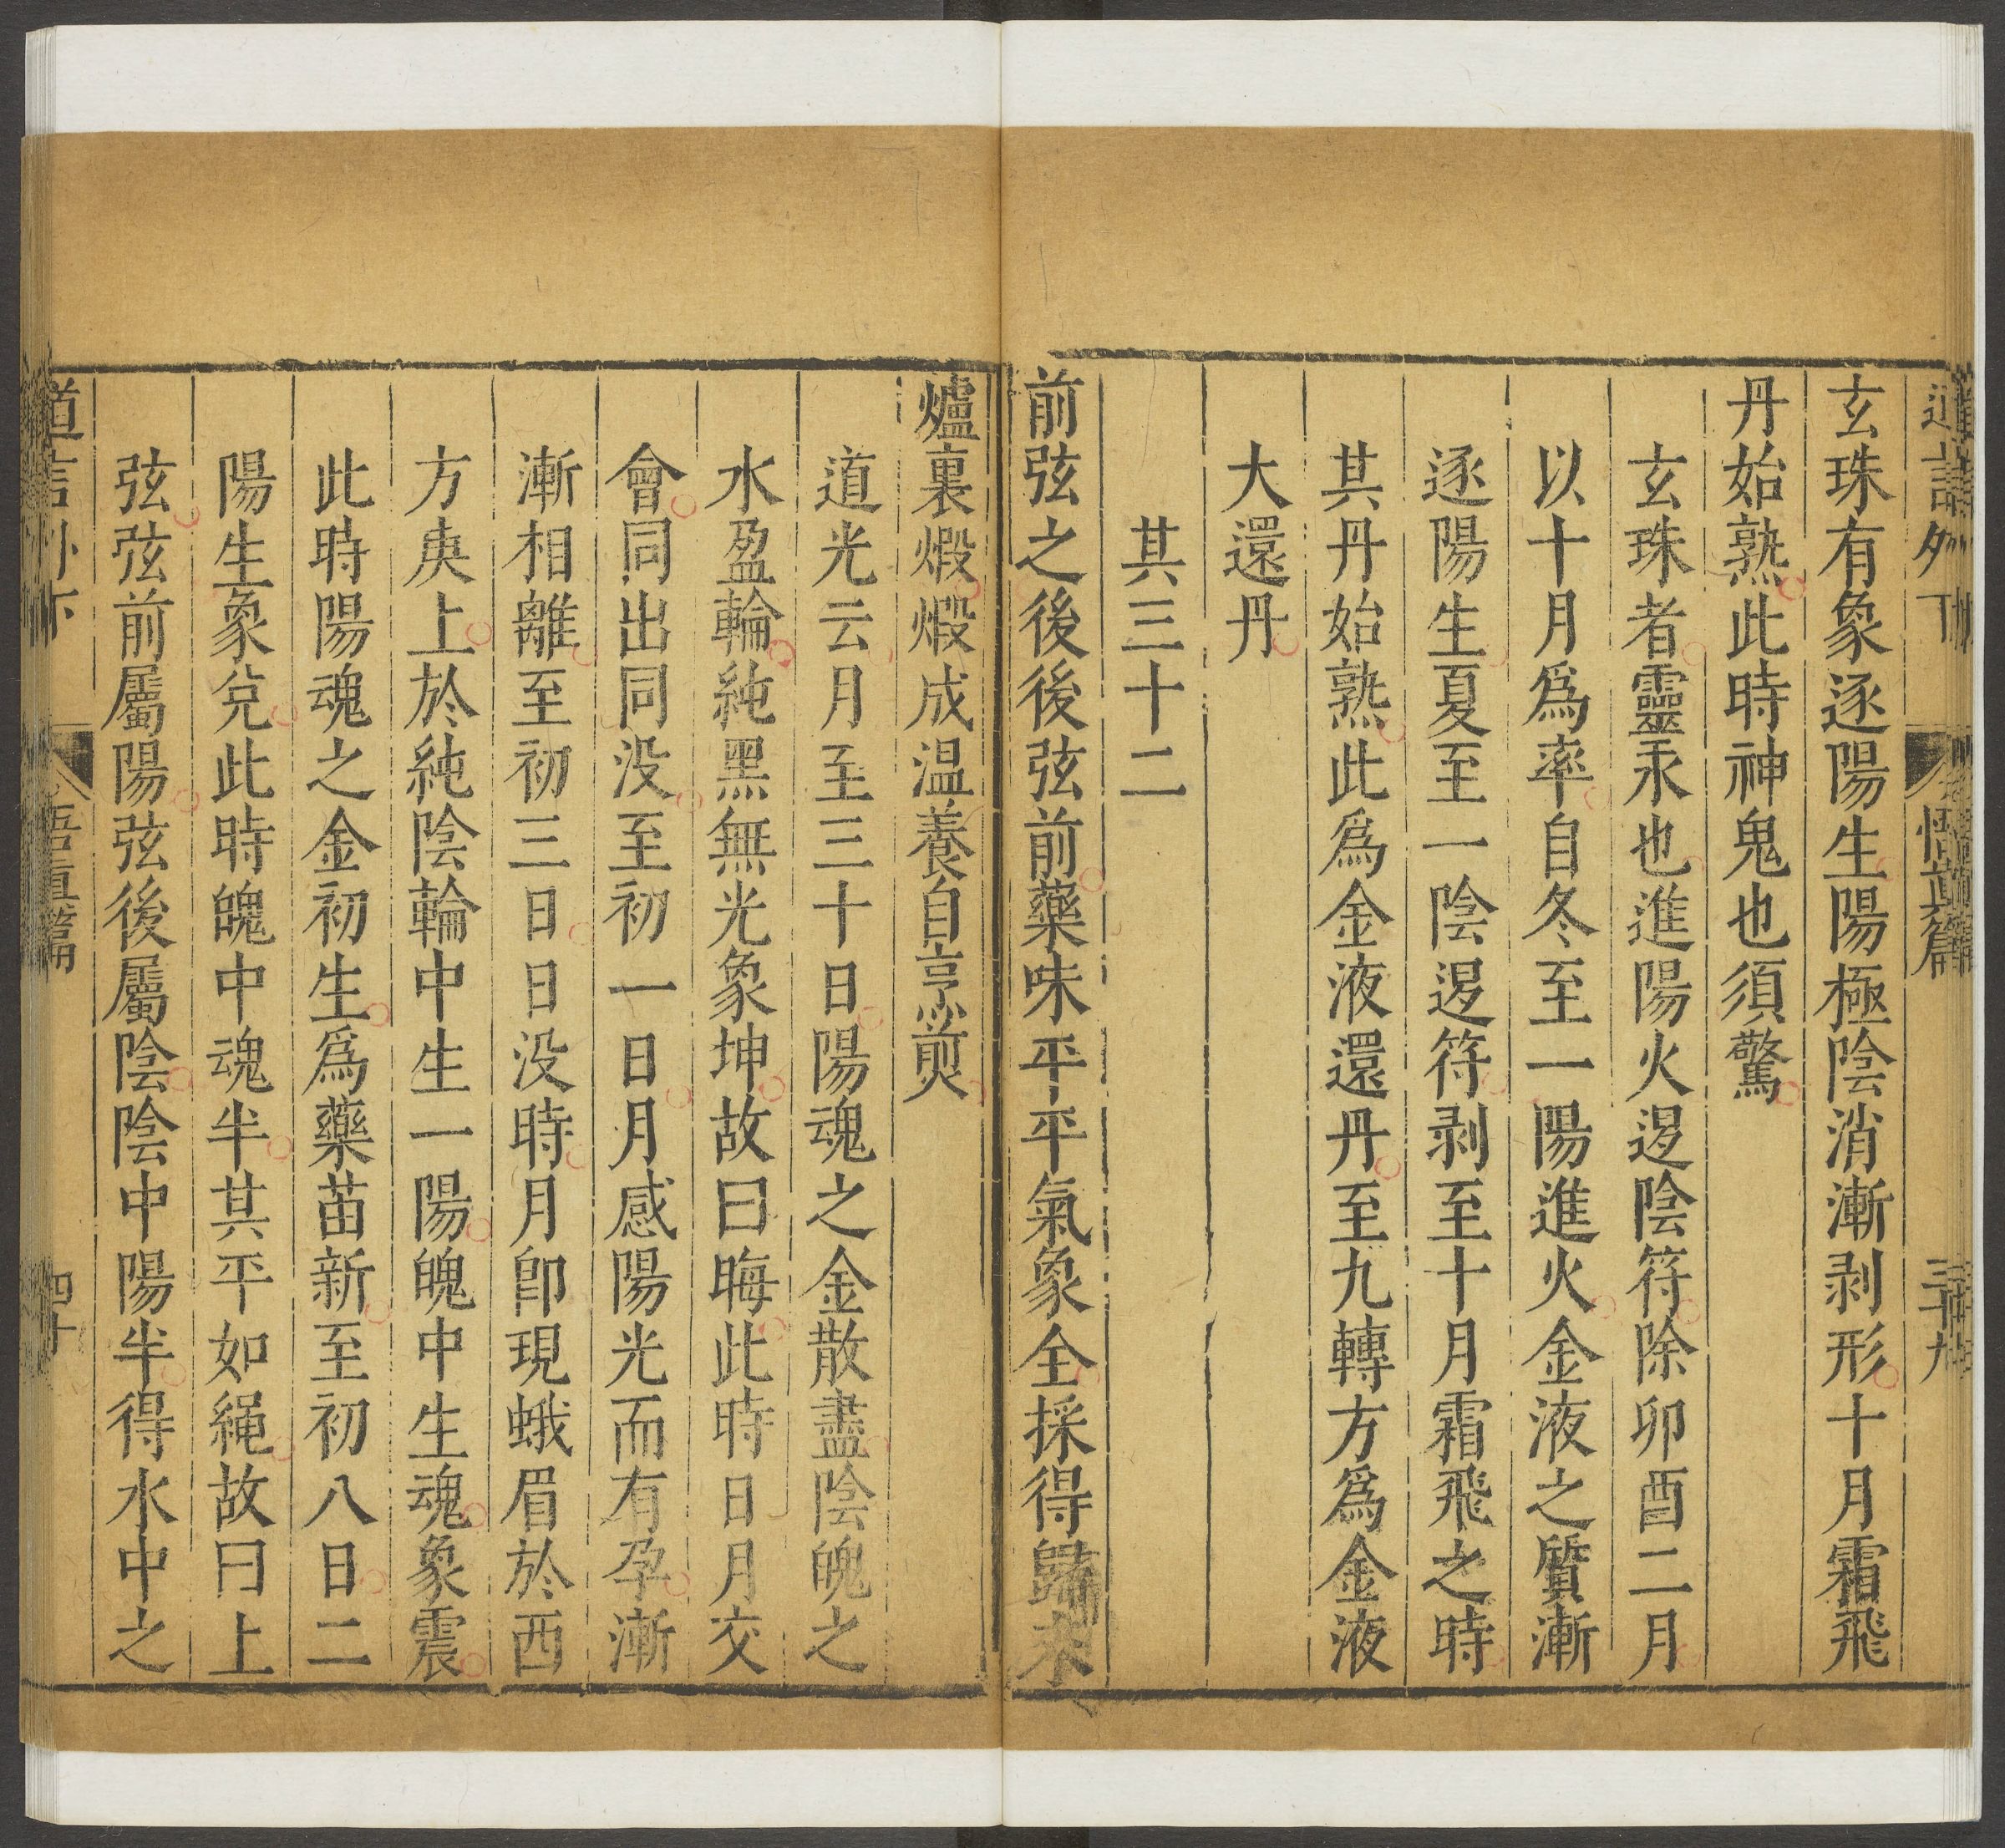 悟真篇
三十九
玄珠有象逐陽生陽極陰消漸剥形十月霜飛
丹始熟此時神鬼也須驚
玄珠者靈汞也進陽火退陰符除卯酉二月
以十月爲率自冬至一陽進火金液之質漸
逐陽生夏至一陰退符剥至十月霜飛之時
其丹始熟此爲金液還丹至九轉方爲金液
大還丹
其三十二
前弦之後後弦前藥味平平氣象全採得歸來
爐裏煅煅成温養自烹煎
道光云月至三十日陽魂之金散盡陰魄之
水盈輪純黑無光象坤故曰晦此時日月交
會同出同没至初一日月感陽光而有孕漸
漸相離至初三日日没時月卽現蛾眉於西
方庚上於純陰輪中生一陽魄中生魂象震
此時陽魂之金初生爲藥苗新至初八日二
陽生象兌此時魄中魂半其平如繩故曰上
弦弦前屬陽弦後屬陰陰中陽半得水中之
道言外下
悟真篇
四十